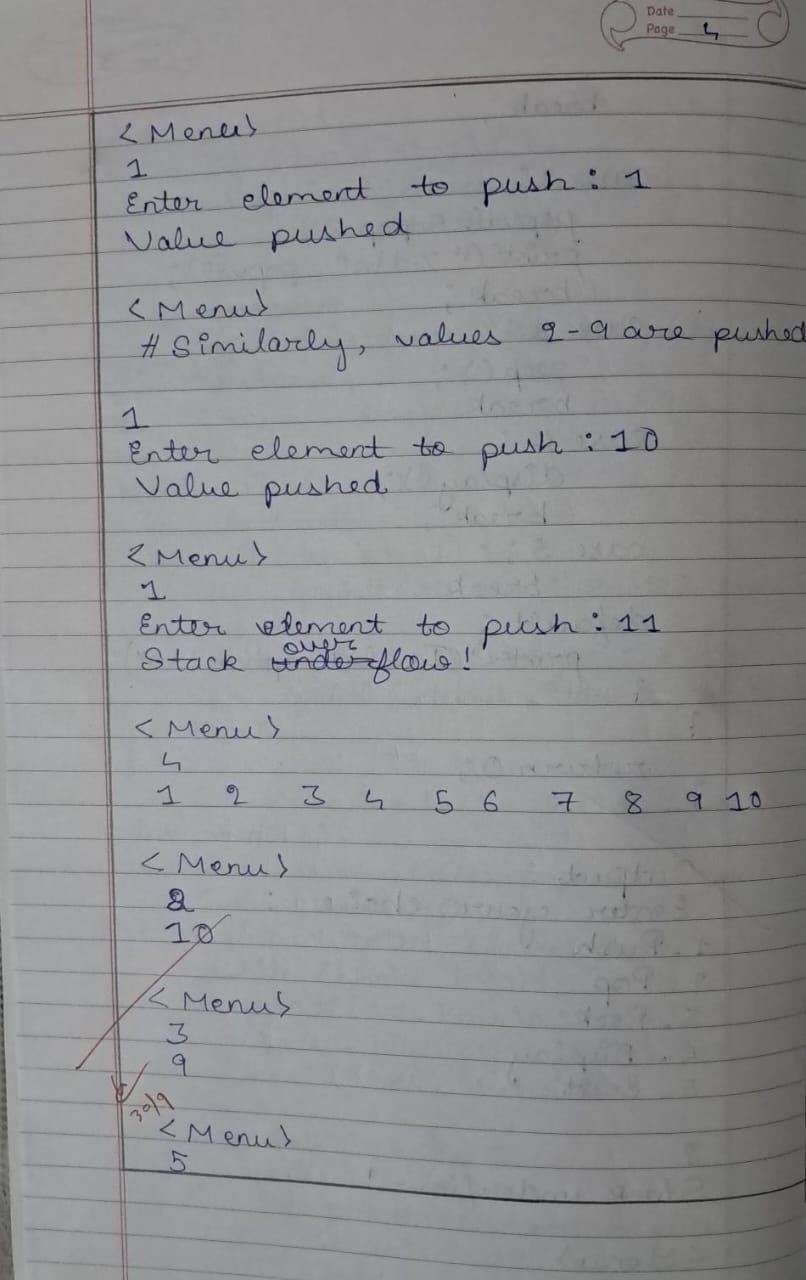 Date
Page 4
<Menu>
1
Enter element to push : 1
Value pushed
<Menu>
# Similarly, values 2-9 are pushed
1
Enter element to push : 10
Value pushed
<Menu>
1
Enter element to push : 11
Stack overflow!
<Menu>
4
1 2 3 4 5 6 7 8 9 10
<Menu>
2
10
<Menu>
3
9
30/9
<Menu>
5